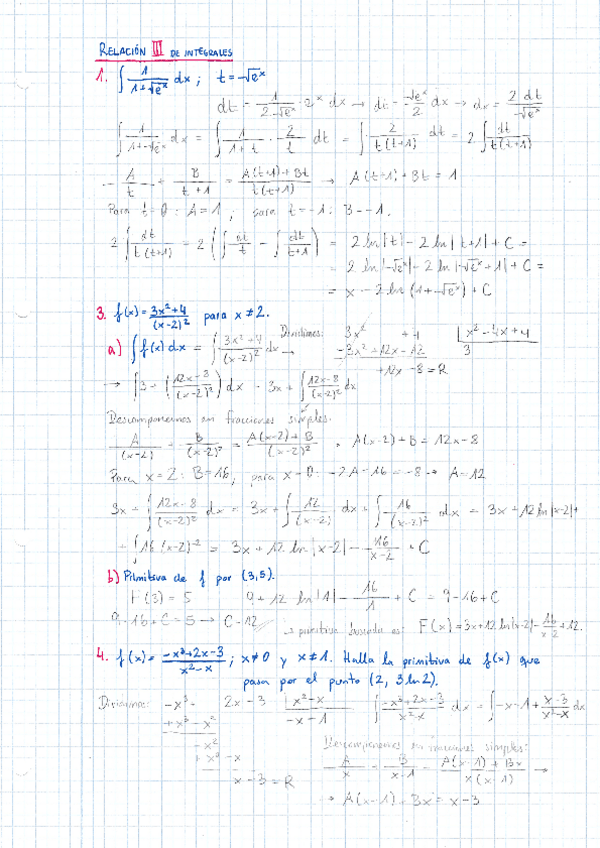 RELACIÓN III DE INTEGRALES
1. ∫ 1/(1+√eˣ) dx ; t = √eˣ
dt = 1/(2√eˣ) · eˣ dx → dt = √eˣ/2 dx → dx = 2dt/√eˣ
∫ 1/(1+√eˣ) dx = ∫ 1/(1+t) · 2/t dt = ∫ 2/(t(t+1)) dt = 2 ∫ dt/(t(t+1))
A/t + B/(t+1) = (A(t+1)+Bt)/(t(t+1)) → A(t+1)+Bt = 1
Para t=0 : A=1 ; para t=-1 : B=-1.
2 ∫ dt/(t(t+1)) = 2 (∫ dt/t - ∫ dt/(t+1)) = 2 ln|t| - 2 ln|t+1| + C =
= 2 ln|√eˣ| - 2 ln|√eˣ+1| + C =
= x - 2 ln(1+√eˣ) + C
3. f(x) = (3x²+4)/(x-2)² para x ≠ 2.
a) ∫ f(x) dx = ∫ (3x²+4)/(x-2)² dx → Dividimos: 3x² +4 | x²-4x+4
-3x²+12x-12 3
+12x-8 = R
→ ∫ (3 + (12x-8)/(x-2)²) dx = 3x + ∫ (12x-8)/(x-2)² dx
Descomponemos en fracciones simples.
A/(x-2) + B/(x-2)² = (A(x-2)+B)/(x-2)² → A(x-2)+B = 12x-8
Para x=2 : B=16, para x=0 : -2A+16=-8 → A=12
3x + ∫ (12x-8)/(x-2)² dx = 3x + ∫ 12/(x-2) dx + ∫ 16/(x-2)² dx = 3x + 12 ln|x-2| +
+ ∫ 16(x-2)⁻² = 3x + 12 ln|x-2| - 16/(x-2) + C
b) Primitiva de f por (3,5).
F(3) = 5 9 + 12 ln|1| - 16/1 + C = 9-16+C
9-16+C = 5 → C=12 → primitiva buscada es: F(x) = 3x+12 ln|x-2| - 16/(x-2) + 12.
4. f(x) = (-x³+2x-3)/(x²-x) ; x≠0 y x≠1. Halla la primitiva de f(x) que
pasa por el punto (2, 3 ln 2).
Dividimos: -x³ 2x-3 | x²-x ∫ (-x³+2x-3)/(x²-x) dx = ∫ -x-1 + (x-3)/(x²-x) dx
+x³-x² -x-1
-x²
+x²-x
x-3 = R
Descomponemos en fracciones simples:
A/x + B/(x-1) = (A(x-1)+Bx)/(x(x-1)) →
→ A(x-1)+Bx = x-3